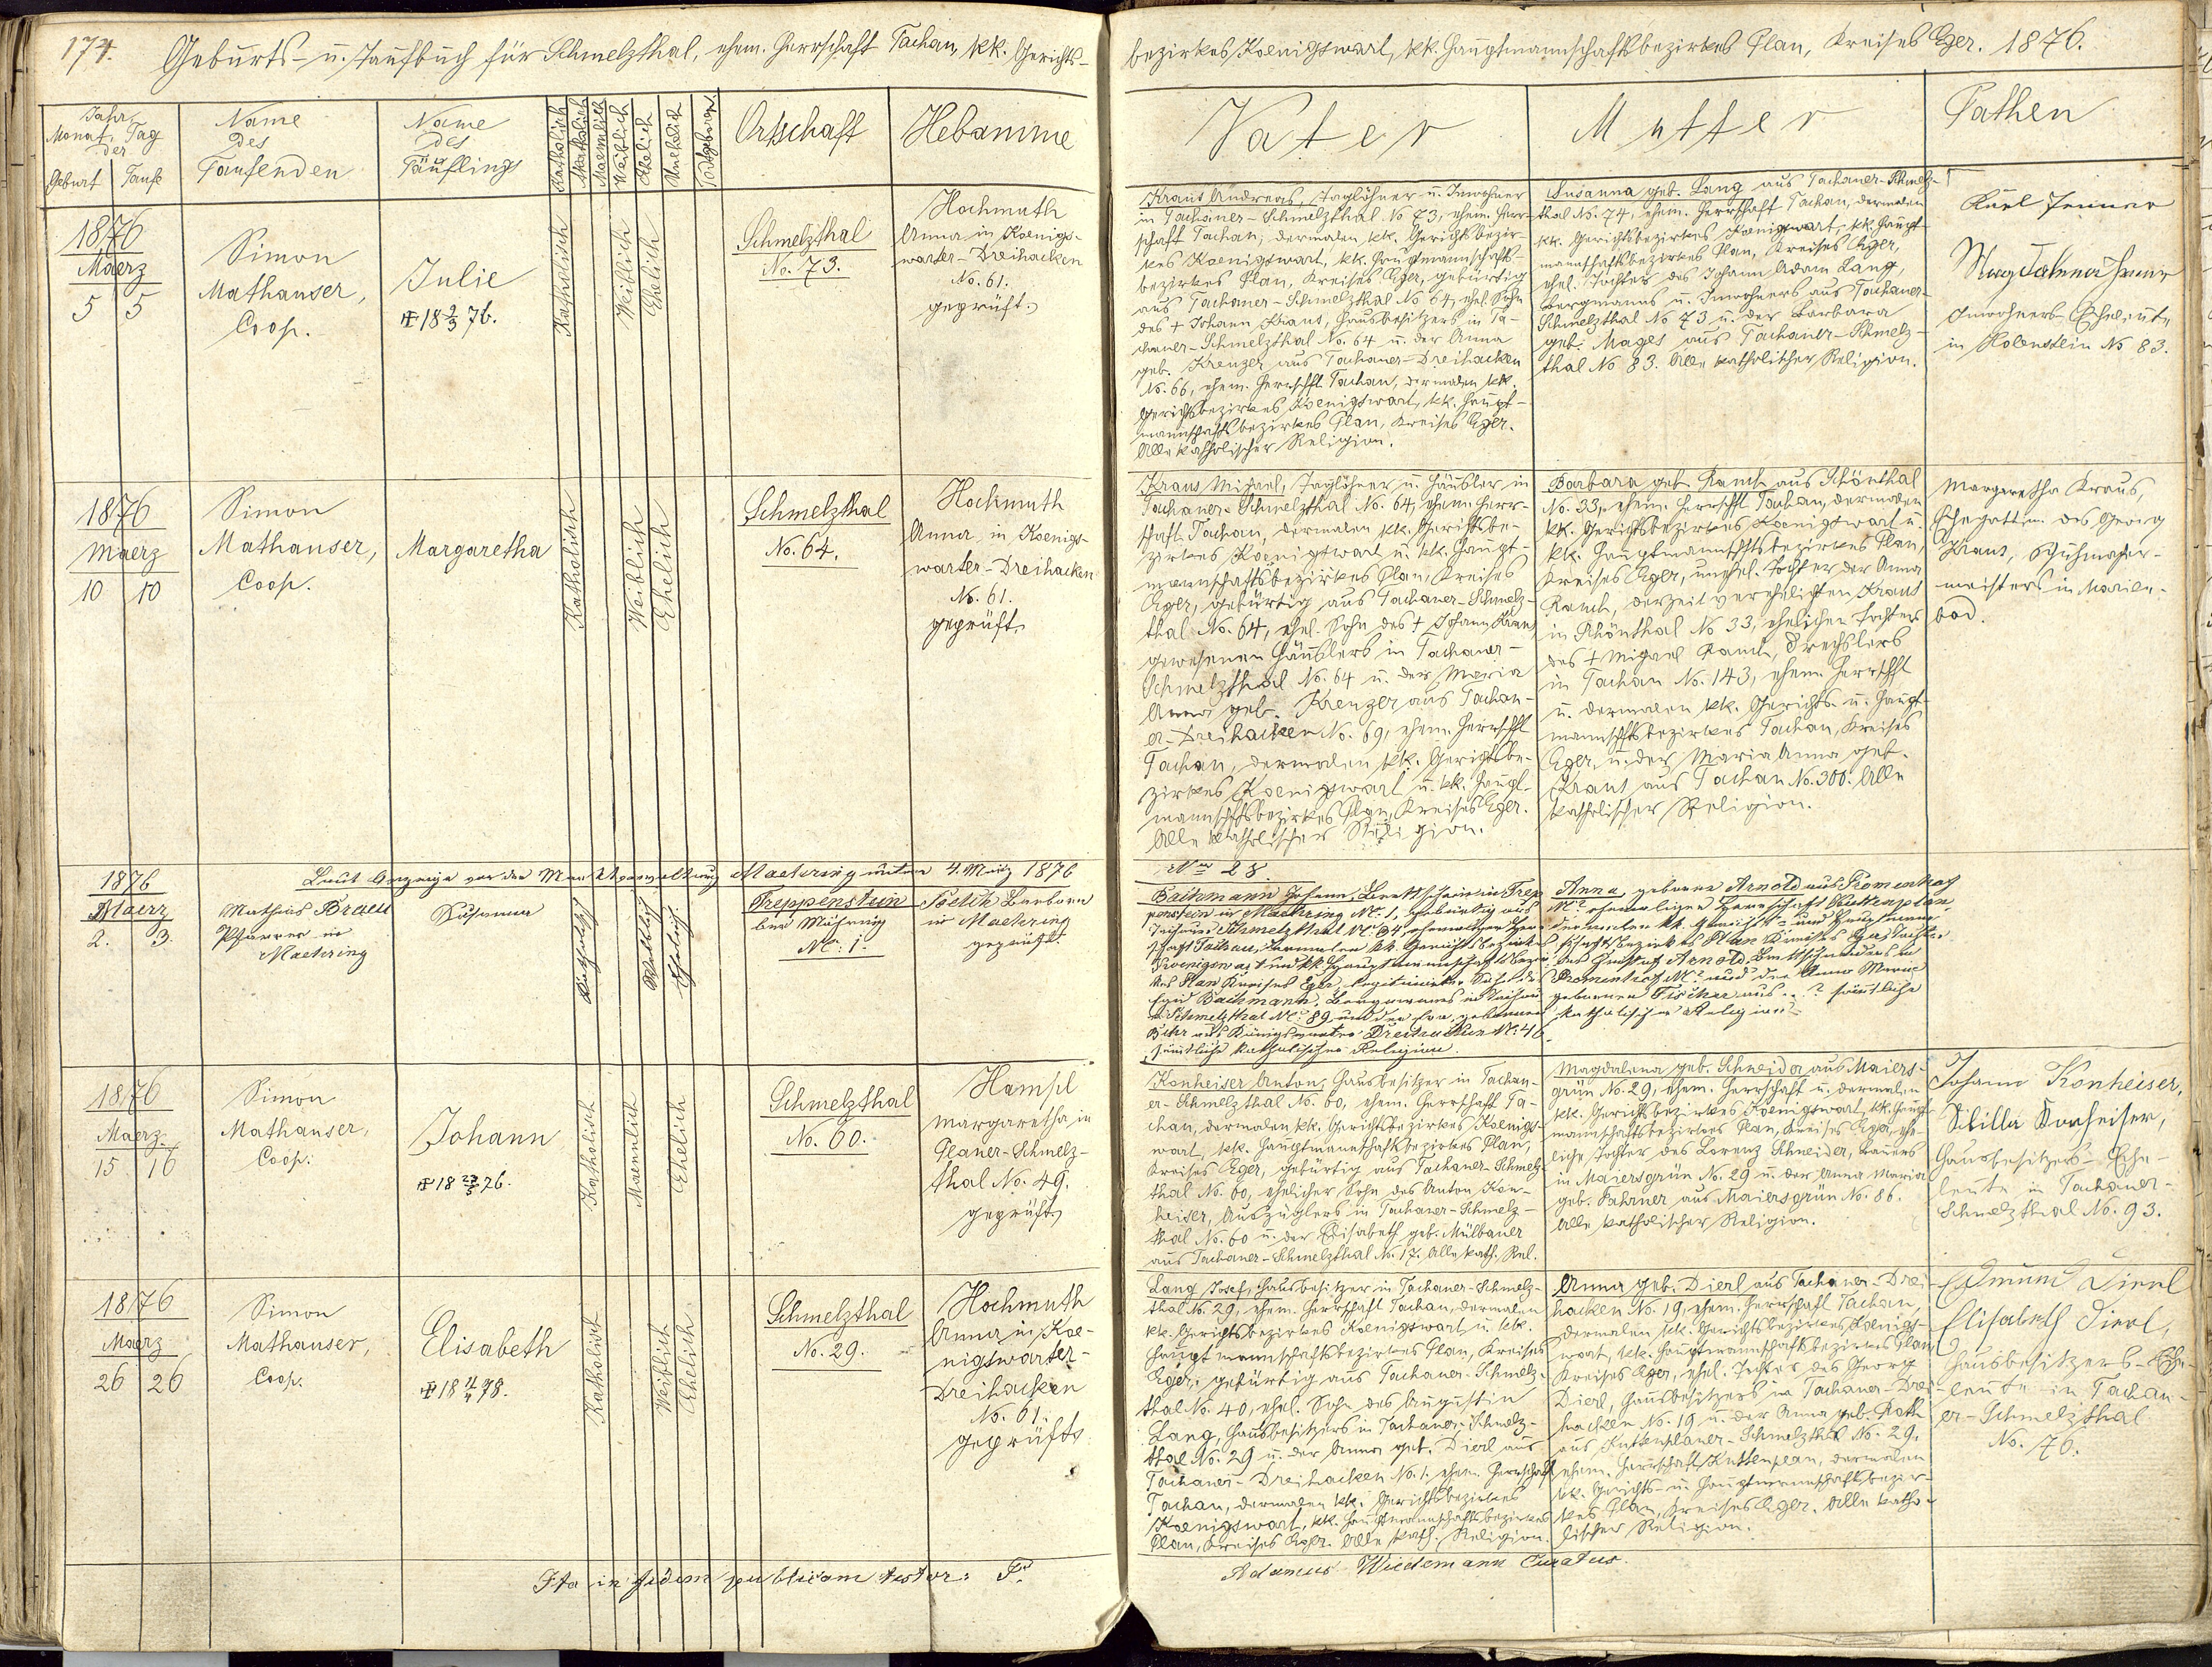 174.
Geburts- u. Taufbuch für Schmelzthal, ehem. Herrschaft Tachau, kk. Gerichts-
bezirkes Koenigswart, kk. Hauptmannschaftsbezirkes Plan, Kreises Eger. 1876.
Jahr,
Monat, Tag
der
Geburt Taufe
Name
des
Taufenden
Name
des
Täuflings
Katholisch
Akatholisch
Maennlich
Weiblich
Ehelich
Unehelich
Todtgeboren
Ortschaft
Hebamme
Vater
Mutter
Pathen
1876
Maerz
5 5
Simon
Mathauser,
Coop.
Julie
18 2/3 76.
Katholisch
Weiblich
Ehelich
Schmelzthal
No. 73.
Hochmuth
Anna in Koenigs-
warter-Dreihacken
No. 61.
geprüft.
Kraus Andreas, Taglöhner u. Inwohner
in Tachauer-Schmelzthal No 73, ehem. Herr-
schaft Tachau, dermalen kk. Gerichtsbezir-
kes Koenigswart, kk. Hauptmannschafts-
bezirkes Plan, Kreises Eger, gebürtig
aus Tachauer-Schmelzthal No 64, ehel. Sohn
des + Johann Kraus, Hausbesitzers in Ta-
chauer-Schmelzthal No. 64 u. der Anna
geb. Krenzer aus Tachauer-Dreihacken
No. 66, ehem. Herrschft Tachau, dermalen kk.
Gerichtsbezirkes Koenigswart, kk. Haupt-
mannschaftsbezirkes Plan, Kreises Eger.
Alle katholischer Religion.
Susanna geb. Lang aus Tachauer-Schmelz-
thal No. 74, ehem. Herrschaft Tachau, dermalen
kk. Gerichtsbezirkes Koenigswart, kk. Haupt-
mannschaftsbezirkes Plan, Kreises Eger,
ehel. Tochter des Johann Adam Lang,
Bergmanns u. Inwohners aus Tachauer-
Schmelzthal No 73 u. der Barbara
geb. Mages aus Tachauer-Schmelz-
thal No 83. Alle katholischer Religion.
Karl
Magdalena
Inwohners-Eheleute
in No 83.
1876
Maerz
10 10
Simon
Mathauser,
Coop.
Margaretha
Katholisch
Weiblich
Ehelich
Schmelzthal
No. 64.
Hochmuth
Anna in Koenigs-
warter-Dreihacken
No. 61.
geprüft.
Kraus Michael, Taglöhner u. Häusler in
Tachauer-Schmelzthal No. 64, ehem. Herr-
schaft Tachau, dermalen kk. Gerichtsbe-
zirkes Koenigswart u. kk. Haupt-
mannschaftsbezirkes Plan, Kreises
Eger, gebürtig aus Tachauer-Schmelz-
thal No. 64, ehel. Sohn des + Johann Kraus
gewesenen Häuslers in Tachauer-
Schmelzthal No. 64 u. der Maria
Anna geb. Krenzer aus Tachau-
er-Dreihacken No. 69, ehem. Herrschft
Tachau, dermalen kk. Gerichtsbe-
zirkes Koenigswart u. kk. Haupt-
mannschftsbezirkes Plan, Kreises Eger.
Alle katholischer Religion.
Barbara geb. Rauch aus Schönthal
No. 33, ehem. Herrschft Tachau, dermalen
kk. Gerichtsbezirkes Koenigswart u.
kk. Hauptmannschftsbezirkes Plan,
Kreises Eger, unehel. Tochter der Anna
Rauch, derzeit verehelichten Kraus
in Schönthal No 33, ehelichen Tochter
des + Michael Rauch, Drechslers
in Tachau No. 143, ehem. Herrschft
u. dermalen kk. Gerichts- u. Haupt-
mannschftsbezirkes Tachau, Kreises
Eger, u. der Maria Anna geb.
Kraus aus Tachau No. 300. Alle
katholischer Religion.
Margaretha Kraus,
Ehegattin des Georg
Kraus, Schuhmacher-
meisters in Marien-
bad.
Laut Anzeige von der Maehring unterm 4. März 1876
1876
Maerz
2. 3.
Mathias Braun
Pfarrer in
Maehring
Susanna
Katholisch
Weiblich
Ehelich
Treppenstein
bei Mähring
No. 1.
Barbara
in Maehring
geprüft.
No 28.
Bachmann Johann, in Trep-
penstein in Maehring No. 1, gebürtig aus
Tachauer Schmelzthal No 94, ehemaliger Herr-
schaft Tachau, dermalen kk. Gerichtsbezirkes
Koenigswart und kk. Hauptmannschaftsbezir-
kes Plan Kreises Eger, legitimirter Sohn des
Egid Bachmann, Bergmannes in Tachau-
er Schmelzthal No: 89 und der geborenen
aus Königswarter Dreihacken No. 46
sämtliche katholischer Religion.
Anna, geborene Arnold aus Promenhof
No? ehemaliger Herrschaft Kuttenplan
dermalen kk. Gerichts- und Hauptmann-
schaftsbezirkes Plan Kreises Eger Tochter
des Arnold in
Promenhof No? und der Anna Maria
geborenen Fischer aus ..? sämtliche
katholischer Religion.
1876
Maerz
15. 16
Simon
Mathauser,
Coop:
Johann
18 23/5 76.
Katholisch
Maennlich
Ehelich
Schmelzthal
No. 60.
Hampl
Margaretha in
Planer-Schmelz-
thal No. 49.
geprüft.
Konheiser Anton, Hausbesitzer in Tachau-
er-Schmelzthal No. 60, ehem. Herrschaft Ta-
chau, dermalen kk. Gerichtsbezirkes Koenigs-
wart, kk. Hauptmannschaftsbezirkes Plan,
Kreises Eger, gebürtig aus Tachauer-Schmelz-
thal No. 60, ehelicher Sohn des Anton Kon-
heiser, Auszüglers in Tachauer-Schmelz-
thal No. 60 u. der Elisabeth geb. Mülbauer
aus Tachauer-Schmelzthal No. 17. Alle kath. Rel.
Magdalena geb. Schneider aus Maiers-
grün No. 29, ehem. Herrschaft u. dermalen
kk. Gerichtsbezirkes Koenigswart, kk. Haupt-
mannschaftsbezirkes Plan, Kreises Eger, ehe-
liche Tochter des Lorenz Schneider, Bauers
in Maiersgrün No. 29 u. der Anna Maria
geb. Fahrner aus Maiersgrün No. 86.
Alle katholischer Religion.
Johann Konheiser,
Sibilla Konheiser,
Hausbesitzers-Ehe-
leute in Tachauer-
Schmelzthal No. 93.
1876
Maerz
26 26
Simon
Mathauser,
Coop.
Elisabeth
18 11/4 78.
Katholisch
Weiblich
Ehelich
Schmelzthal
No. 29.
Hochmuth
Anna in Koe-
nigswarter-
Dreihacken
No. 61.
geprüft.
Lang Josef, Hausbesitzer in Tachauer-Schmelz-
thal No. 29, ehem. Herrschaft Tachau, dermalen
kk. Gerichtsbezirkes Koenigswart u. kk.
Hauptmannschaftsbezirkes Plan, Kreises
Eger, gebürtig aus Tachauer-Schmelz-
thal No. 40, ehel. Sohn des Augustin
Lang, Hausbesitzers in Tachauer-Schmelz-
thal No. 29 u. der Anna geb. Dierl aus
Tachauer-Dreihacken No. 1. ehem. Herrschaft
Tachau, dermalen kk. Gerichtsbezirkes
Koenigswart, kk. Hauptmannschaftsbezirkes
Plan, Kreises Eger. Alle kath. Religion.
Anna geb. Dierl aus Tachauer-Drei-
hacken No. 19, ehem. Herrschaft Tachau,
dermalen kk. Gerichtsbezirkes Koenigs-
wart, kk. Hauptmannschaftsbezirkes Plan
Kreises Eger, ehel. Tochter des Georg
Dierl, Hausbesitzers in Tachauer-Drei-
hacken No. 19 u. der Anna geb. Roth
aus Kuttenplaner-Schmelzthal No. 29.
ehem. Herrschaft Kuttenplan, dermalen
kk. Gerichts- u. Hauptmannschaftsbezir-
kes Plan, Kreises Eger. Alle katho-
lischer Religion.
Edmund Dierl
Elisabeth Dierl,
Hausbesitzers-Ehe-
leute in Tachau-
er-Schmelzthal
No. 76.
Ita in fidem publicam testor: P.
Adamus Wiedemann Curatus.